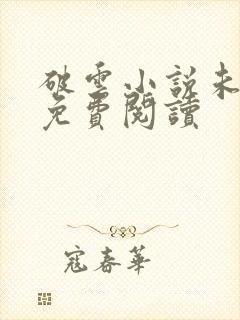 破雲小說未
免費閱讀
寇春華